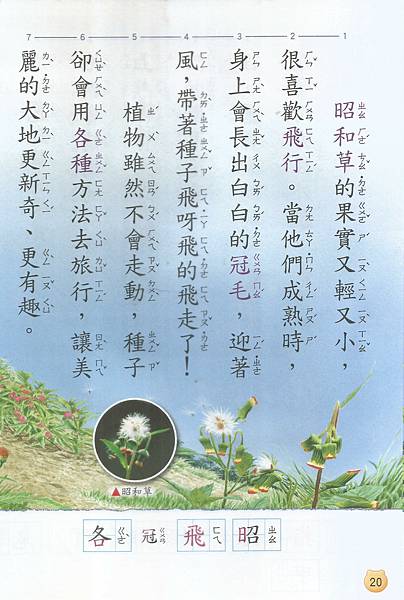 1 2 3 4 5 6 7
昭和草的果實又輕又小，
很喜歡飛行。當他們成熟時，
身上會長出白白的冠毛，迎著
風，帶著種子飛呀飛的飛走了！
植物雖然不會走動，種子
卻會用各種方法去旅行，讓美
麗的大地更新奇、更有趣。
▲昭和草
昭 ㄓㄠ
飛 ㄈㄟ
冠 ㄍㄨㄢ
各 ㄍㄜˋ
20